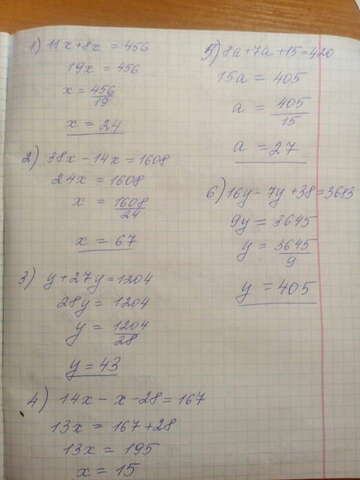 1) 11x+8x = 456
19x = 456
x = 456/19
x = 24
2) 38x - 14x = 1608
24x = 1608
x = 1608/24
x = 67
3) y + 27y = 1204
28y = 1204
y = 1204/28
y = 43
4) 14x - x - 28 = 167
13x = 167+28
13x = 195
x = 15
5) 8a + 7a + 15 = 420
15a = 405
a = 405/15
a = 27
6) 16y - 7y + 38 = 3683
9y = 3645
y = 3645/9
y = 405